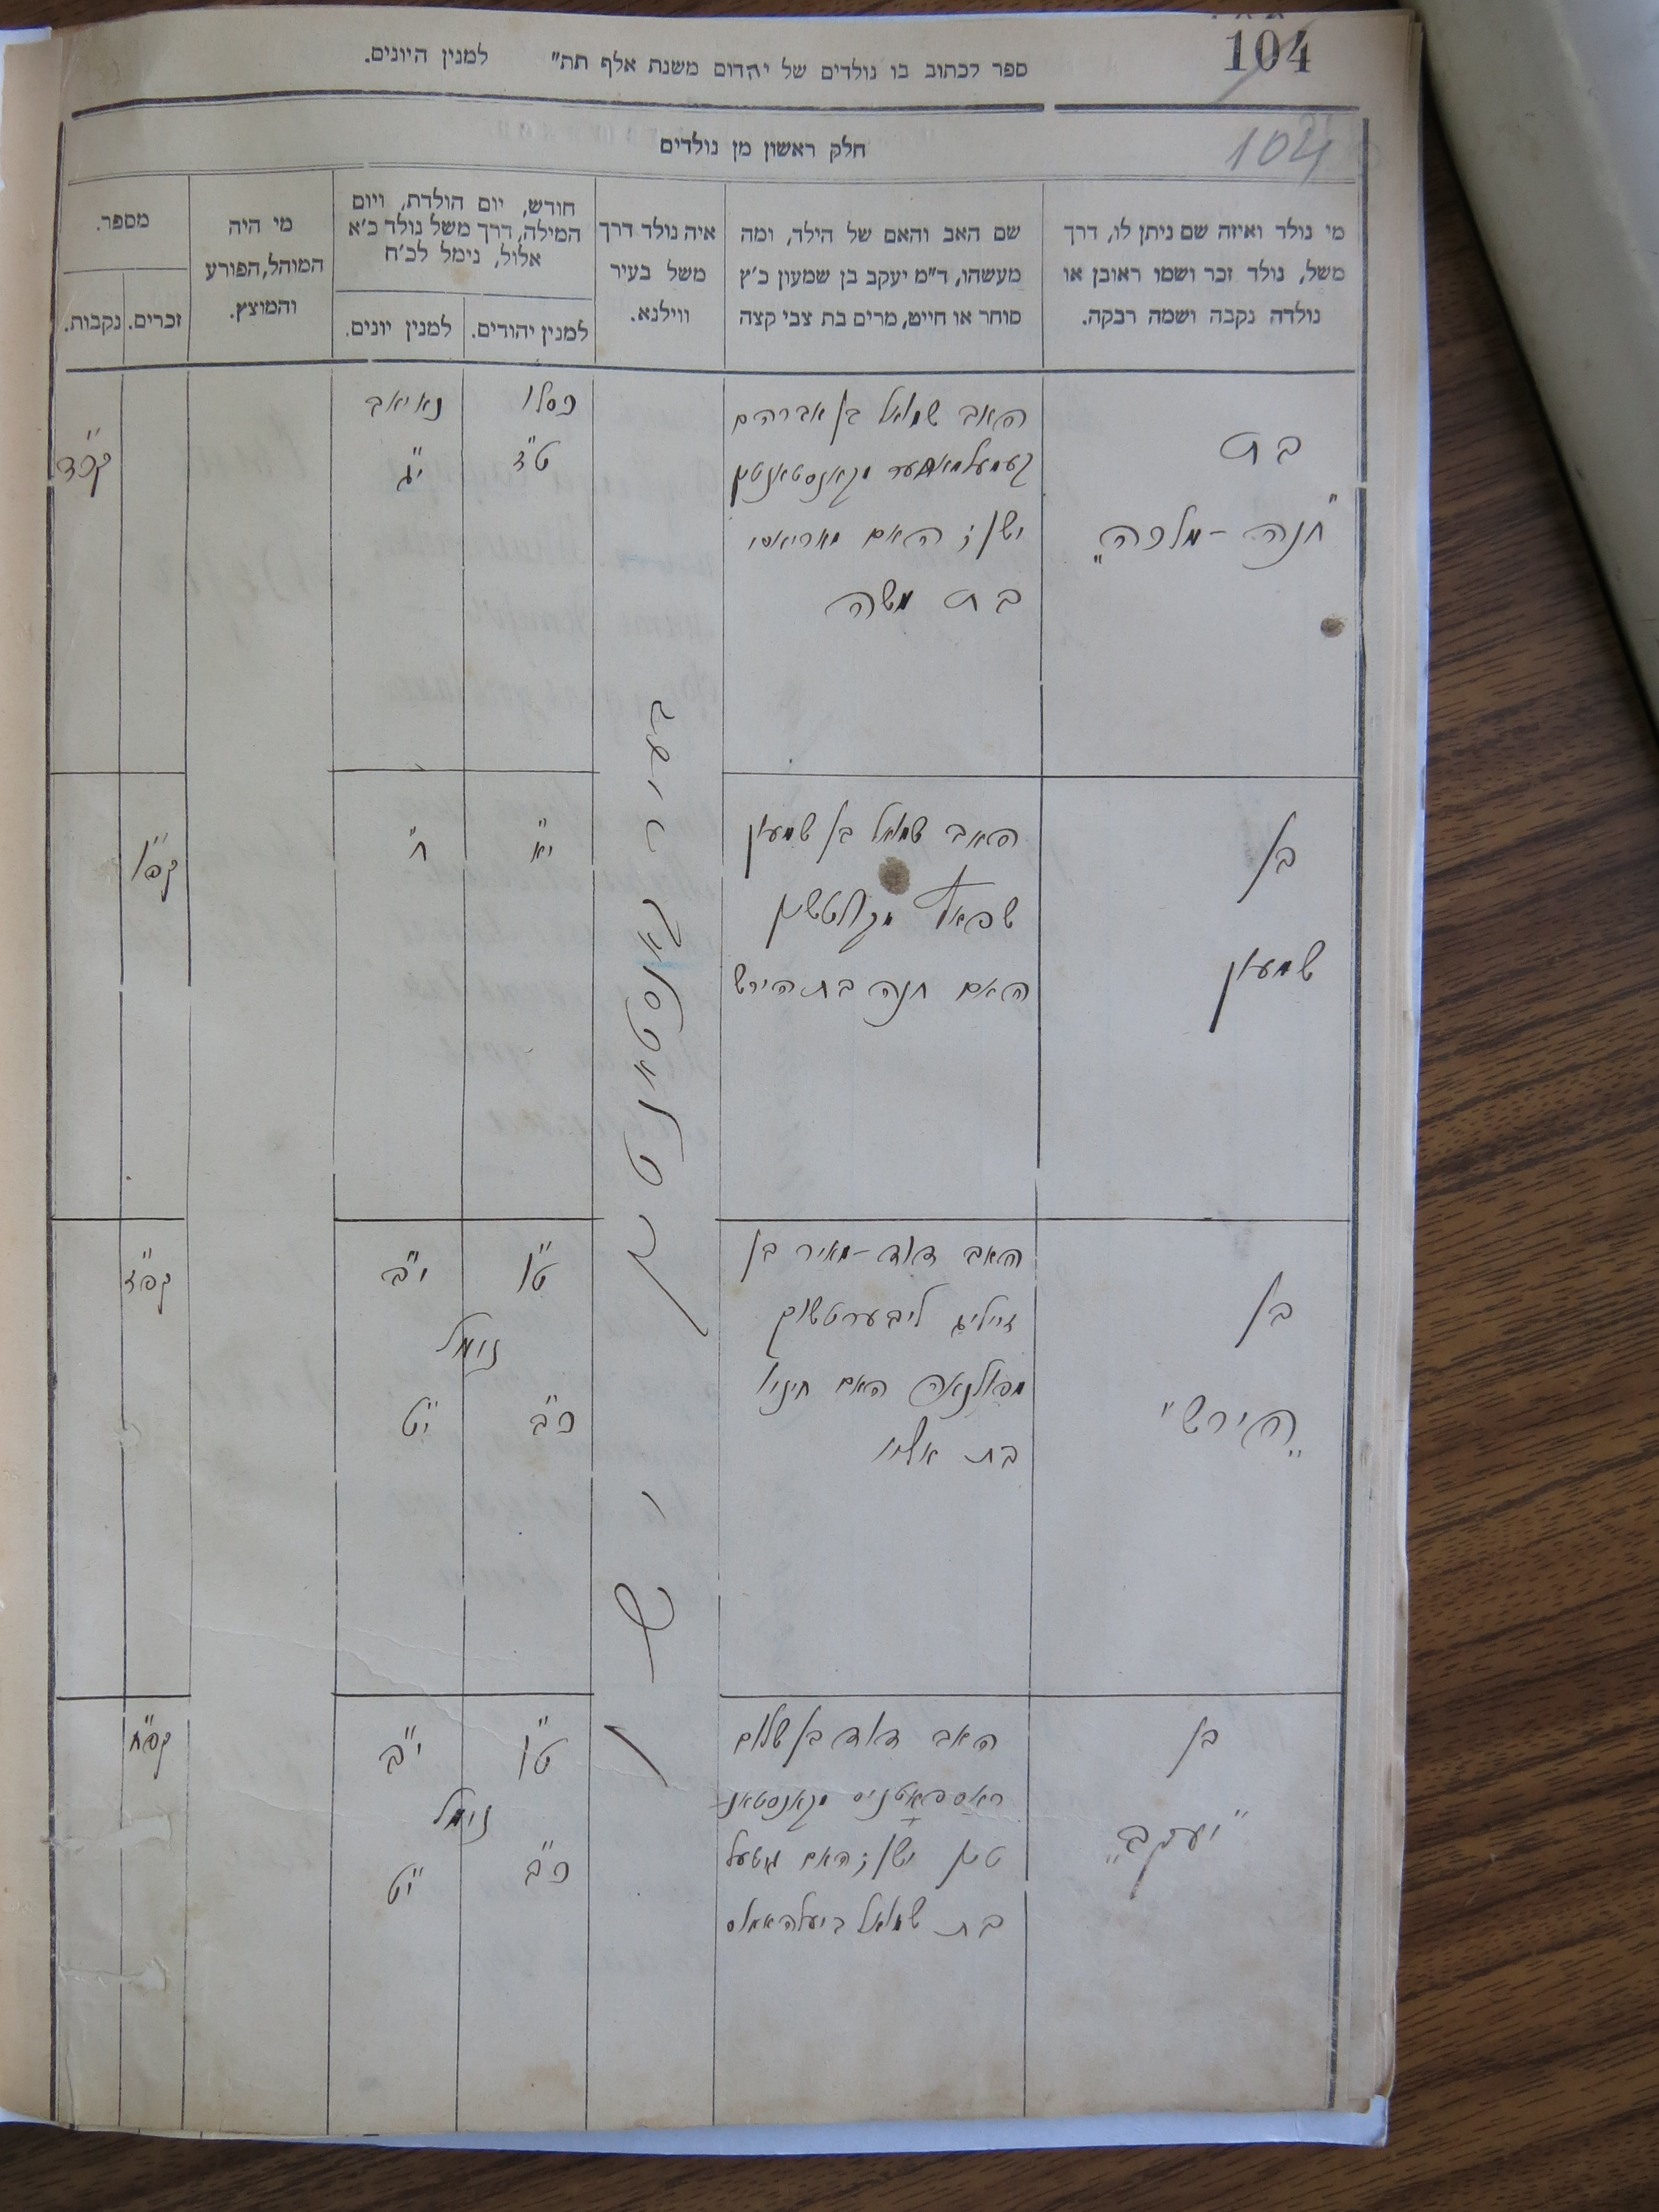 104
ספר לכתוב בו נולדים של יהדום משנת אלף תת״ למנין היונים.
104
חלק ראשון מן נולדים
מי נולד ואיזה שם ניתן לו, דרך
משל, נולד זכר ושמו ראובן או
נולדה נקבה ושמה רבקה.
שם האב והאם של הילד, ומה
מעשהו, ד״מ יעקב בן שמעון כ׳ץ
סוחר או חייט, מרים בת צבי קצה
איה נולד דרך
משל בעיר
ווילנא.
חודש, יום הולדת, ויום
המילה, דרך משל נולד כ׳א
אלול, נימל לכ׳ח
למנין יהודים.
למנין יונים.
מי היה
המוהל, הפורע
והמוצץ.
מספר.
זכרים.
נקבות.
בת
״חנה - מלכה״
האב שמואל בן אברהם
מקאנסטאנטין
ישן; האם מאריאסי
בת משה
כסלו
ט״ז
נאיאב
י״ג
בעיר קאנסטאנטין ישן
בן
שמעון
האב שמואל בן שמעון
האם חנה בת הירש
י״א
ח״
קפ״ו
בן
„הירש״
האב דוד-מאיר בן
זייליג ליבערטשוק
האם חינוי
בת אליו
ט״ו
י״ב
נימל
כ״ב
י״ט
קפ״ז
בן
״יעקב״
האב דוד בן שלום
מקאנסטאנ-
טין ישן; האם גיטעל
בת שמואל
ט״ו
י״ב
נימל
כ״ב
י״ט
קפ״ח